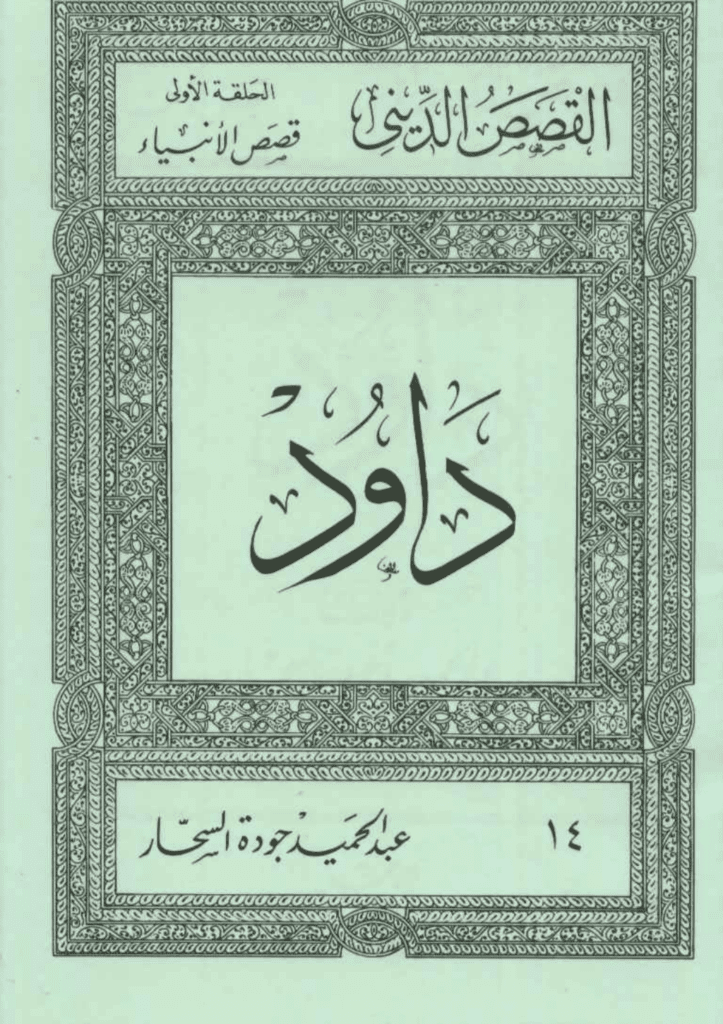 القَصَصُ الدِّينِى
الحَلقة الأولى
قصَص الأنبياء
دَاوُدْ
١٤
عبد الحميد جودة السحّار